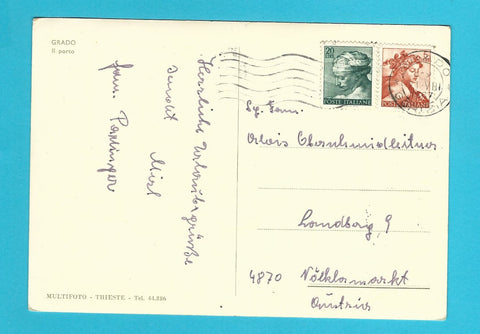 GRADO
Il porto
Herzliche Urlaubsgrüße
sendet
Mizl
Fam. Portinger
20
POSTE ITALIANE
POSTE ITALIANE
Fam.
Alois Oberschmidleitner
Landberg 9
4870 Völklamarkt
Austria
MULTIFOTO - TRIESTE - Tel. 44.886